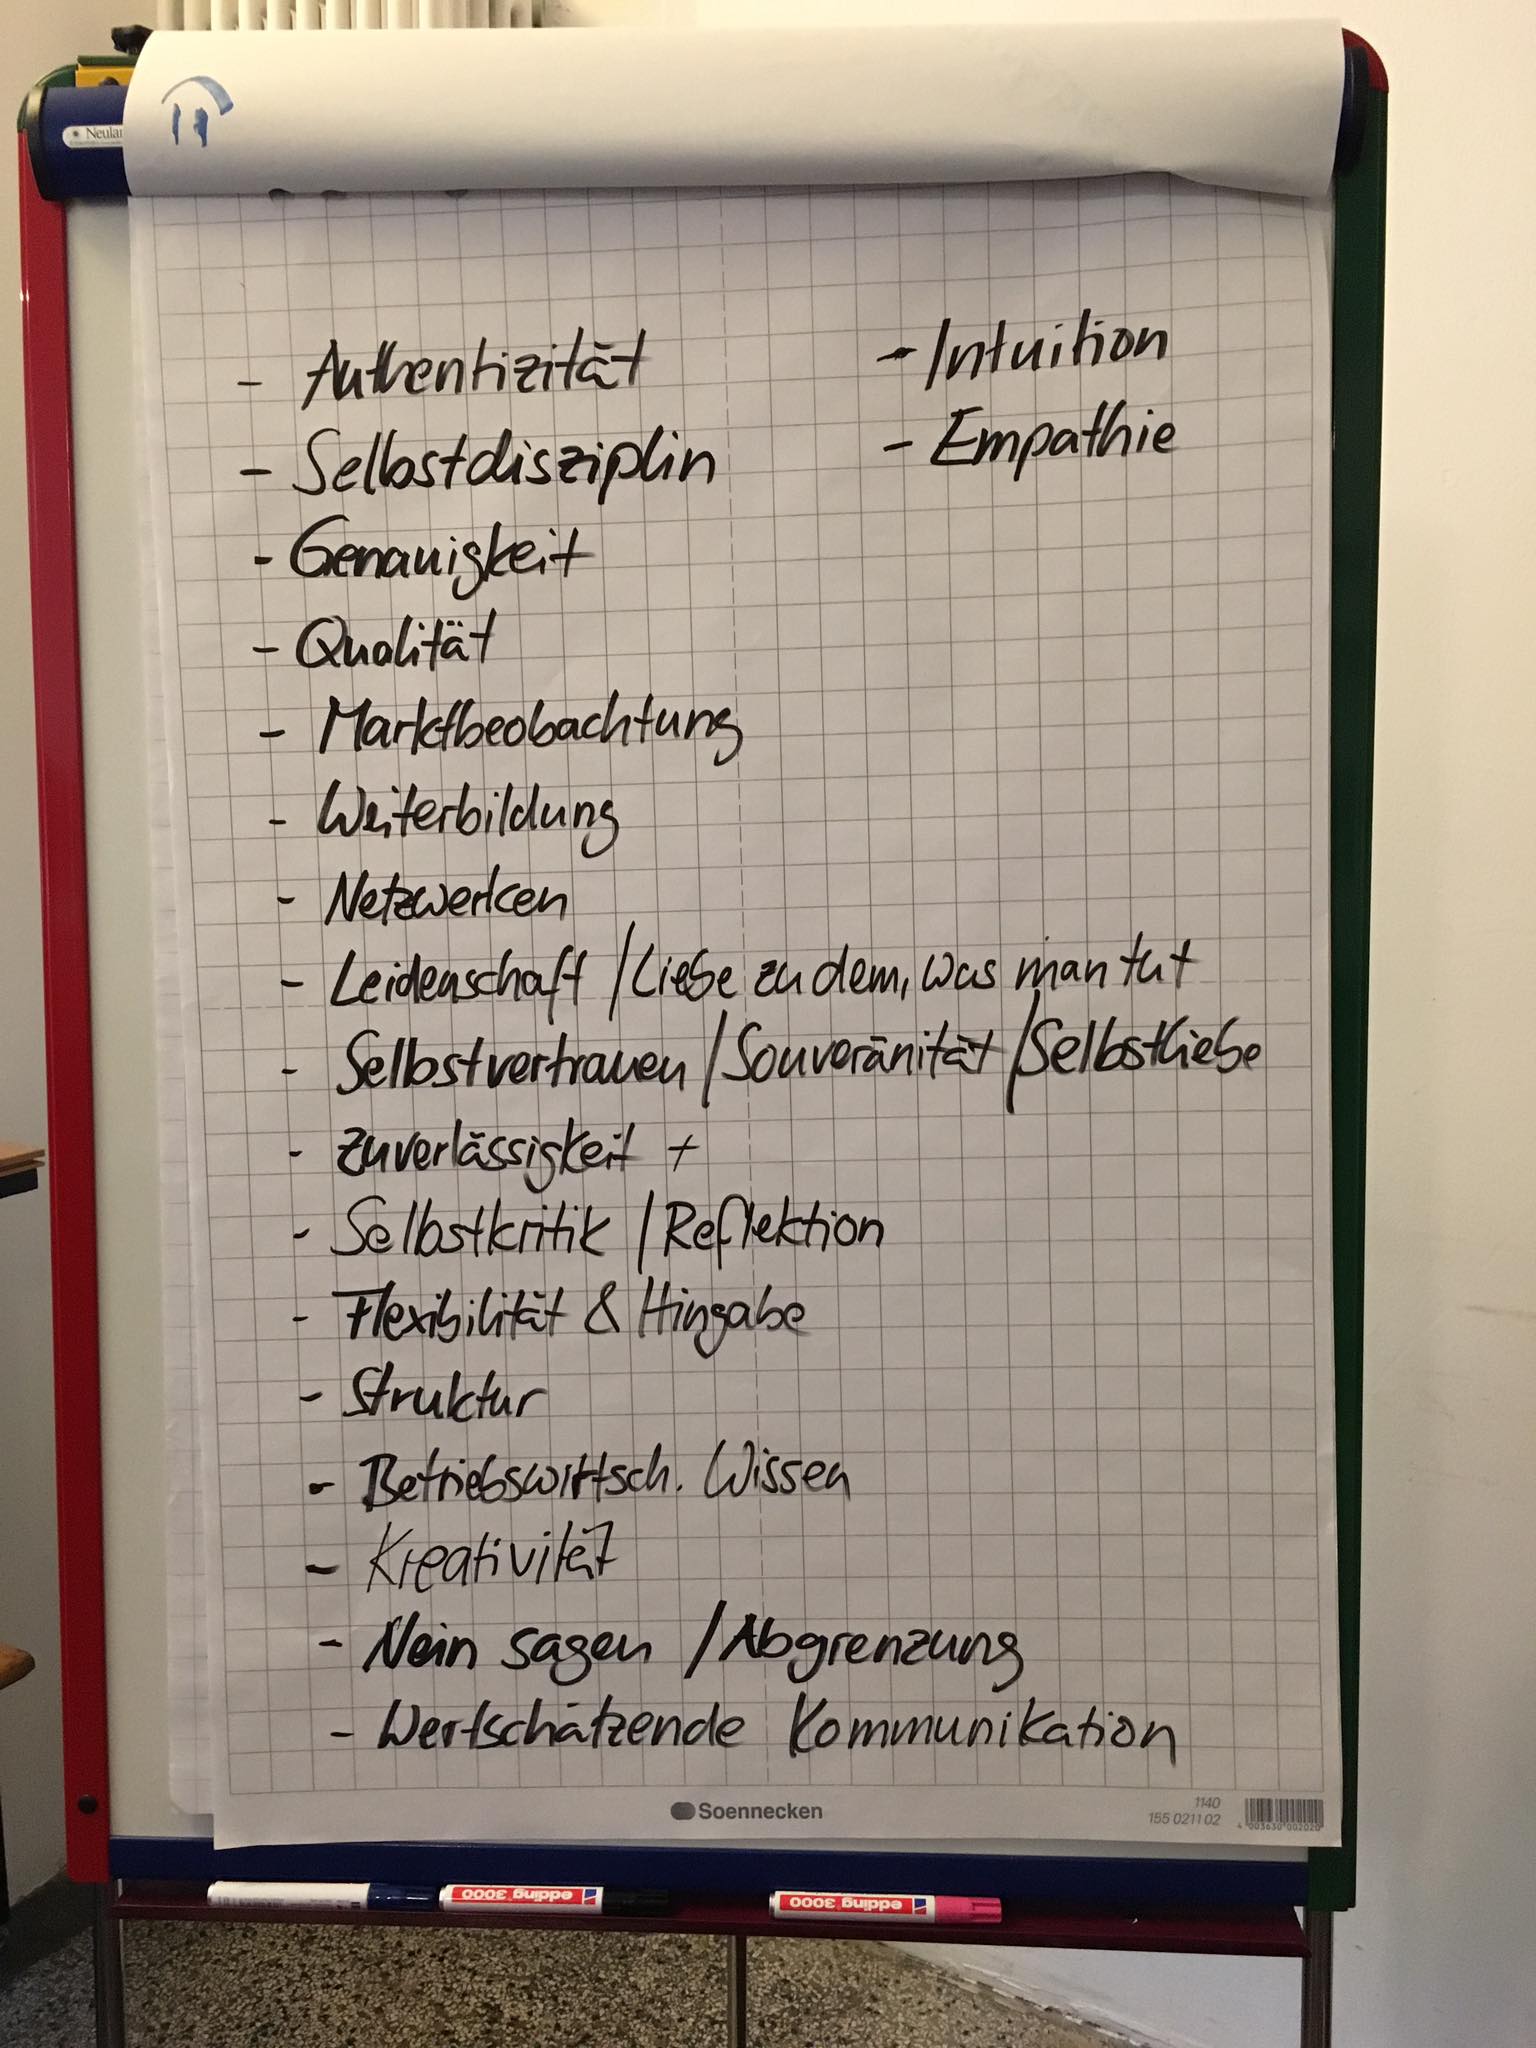 Neulan
- Authentizität
- Selbstdisziplin
- Genauigkeit
- Qualität
- Marktbeobachtung
- Weiterbildung
- Netzwerken
- Leidenschaft / Liebe zu dem, was man tut
- Selbstvertrauen / Souveränität / Selbstliebe
- Zuverlässigkeit +
- Selbstkritik / Reflektion
- Flexibilität & Hingabe
- Struktur
- Betriebswirtsch. Wissen
- Kreativität
- Nein sagen / Abgrenzung
- Wertschätzende Kommunikation
- Intuition
- Empathie
Soennecken
1140
155 0211 02
4 003630 002020
edding 3000
edding 3000